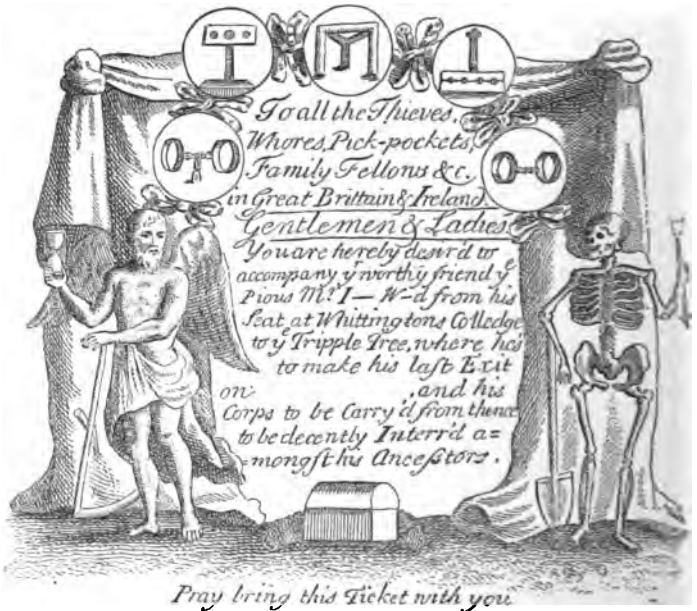 To all the Thieves,
Whores, Pick-pockets,
Family Fellons &c.
in Great Brittain & Ireland.
Gentlemen & Ladies
You are hereby desir'd to
accompany yr worthy friend ye
Pious Mr. I— W-d from his
Seat at Whittingtons Colledge
to ye Tripple Tree, where he's
to make his last Exit
on , and his
Corps to be Carry'd from thence
to be decently Interr'd a=
=mongst his Ancestors.
Pray bring this Ticket with you